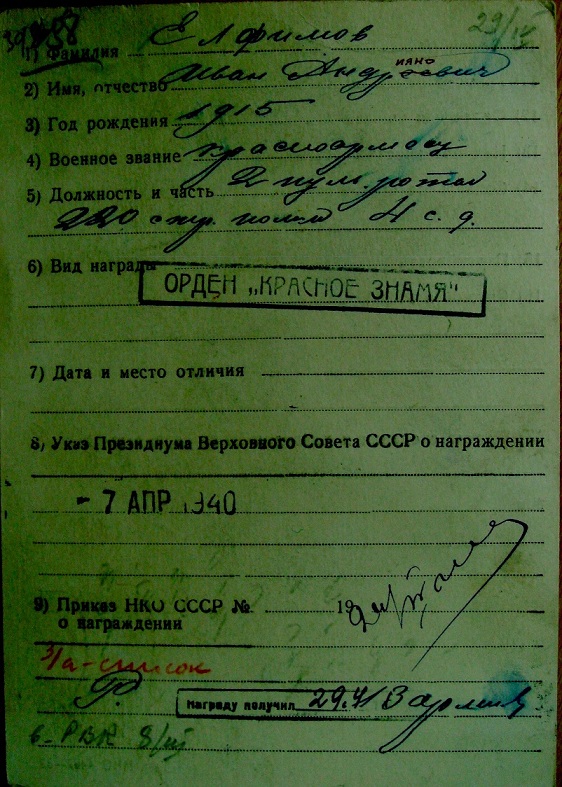 29/IV
1) Фамилия Елфимов
2) Имя, отчество Иван Андреевич
ИАНО
3) Год рождения 1915
4) Военное звание красноармеец
5) Должность и часть 2 пул. ротой
220 стр. полка 4 с. д.
6) Вид награды
ОРДЕН „КРАСНОЕ ЗНАМЯ"
7) Дата и место отличия
8) Указ Президиума Верховного Совета СССР о награждении
- 7 АПР 1940
9) Приказ НКО СССР № 19
о награждении
3/а-список
Награду получил 29.4/ В армии
6- РВК 8/III